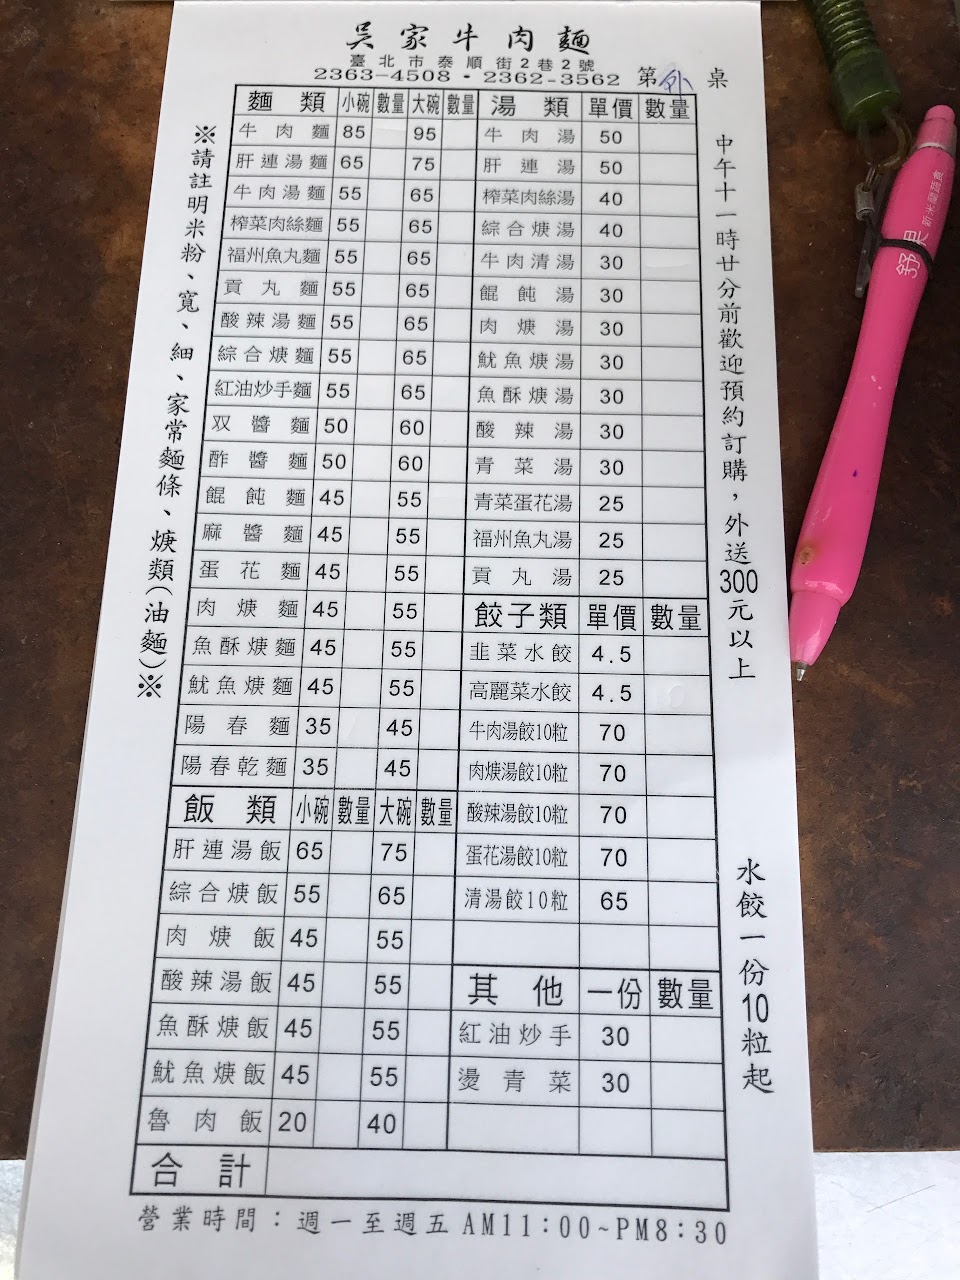 吳家牛肉麵
臺北市泰順街2巷2號
2363-4508・2362-3562 第外桌
麵類 小碗 數量 大碗 數量
牛肉麵 85 95
肝連湯麵 65 75
牛肉湯麵 55 65
榨菜肉絲麵 55 65
福州魚丸麵 55 65
貢丸麵 55 65
酸辣湯麵 55 65
綜合焿麵 55 65
紅油炒手麵 55 65
双醬麵 50 60
酢醬麵 50 60
餛飩麵 45 55
麻醬麵 45 55
蛋花麵 45 55
肉焿麵 45 55
魚酥焿麵 45 55
魷魚焿麵 45 55
陽春麵 35 45
陽春乾麵 35 45
飯類 小碗 數量 大碗 數量
肝連湯飯 65 75
綜合焿飯 55 65
肉焿飯 45 55
酸辣湯飯 45 55
魚酥焿飯 45 55
魷魚焿飯 45 55
魯肉飯 20 40
湯類 單價 數量
牛肉湯 50
肝連湯 50
榨菜肉絲湯 40
綜合焿湯 40
牛肉清湯 30
餛飩湯 30
肉焿湯 30
魷魚焿湯 30
魚酥焿湯 30
酸辣湯 30
青菜湯 30
青菜蛋花湯 25
福州魚丸湯 25
貢丸湯 25
餃子類 單價 數量
韭菜水餃 4.5
高麗菜水餃 4.5
牛肉湯餃10粒 70
肉焿湯餃10粒 70
酸辣湯餃10粒 70
蛋花湯餃10粒 70
清湯餃10粒 65
其他 一份 數量
紅油炒手 30
燙青菜 30
合計
※請註明米粉、寬、細、家常麵條、焿類(油麵)※
中午十一時廿分前歡迎預約訂購,外送300元以上
水餃一份10粒起
營業時間：週一至週五AM11:00~PM8:30
舒果
新米蘭蔬食